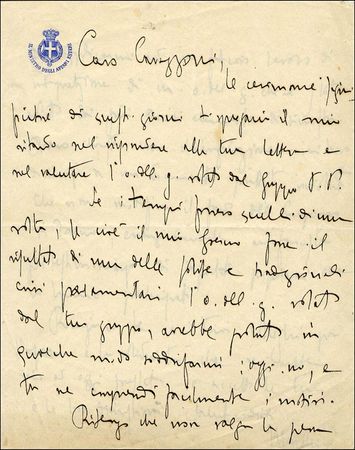 IL MINISTRO DEGLI AFFARI ESTERI
Caro
le cerimonie
di questi giorni ti spiegano il mio
ritardo nel rispondere alla tua lettera e
nel valutare l'o. d. g. votato dal gruppo
Se i tempi fossero quelli di una
volta, se cioè il mio Governo fosse il
risultato di una delle solite e tradizionali
crisi parlamentari l'o. d. g. votato
dal tuo gruppo, avrebbe potuto in
qualche modo soddisfarmi: oggi, no, e
tu ne comprendi facilmente i motivi.
Ritengo che non valga la pena